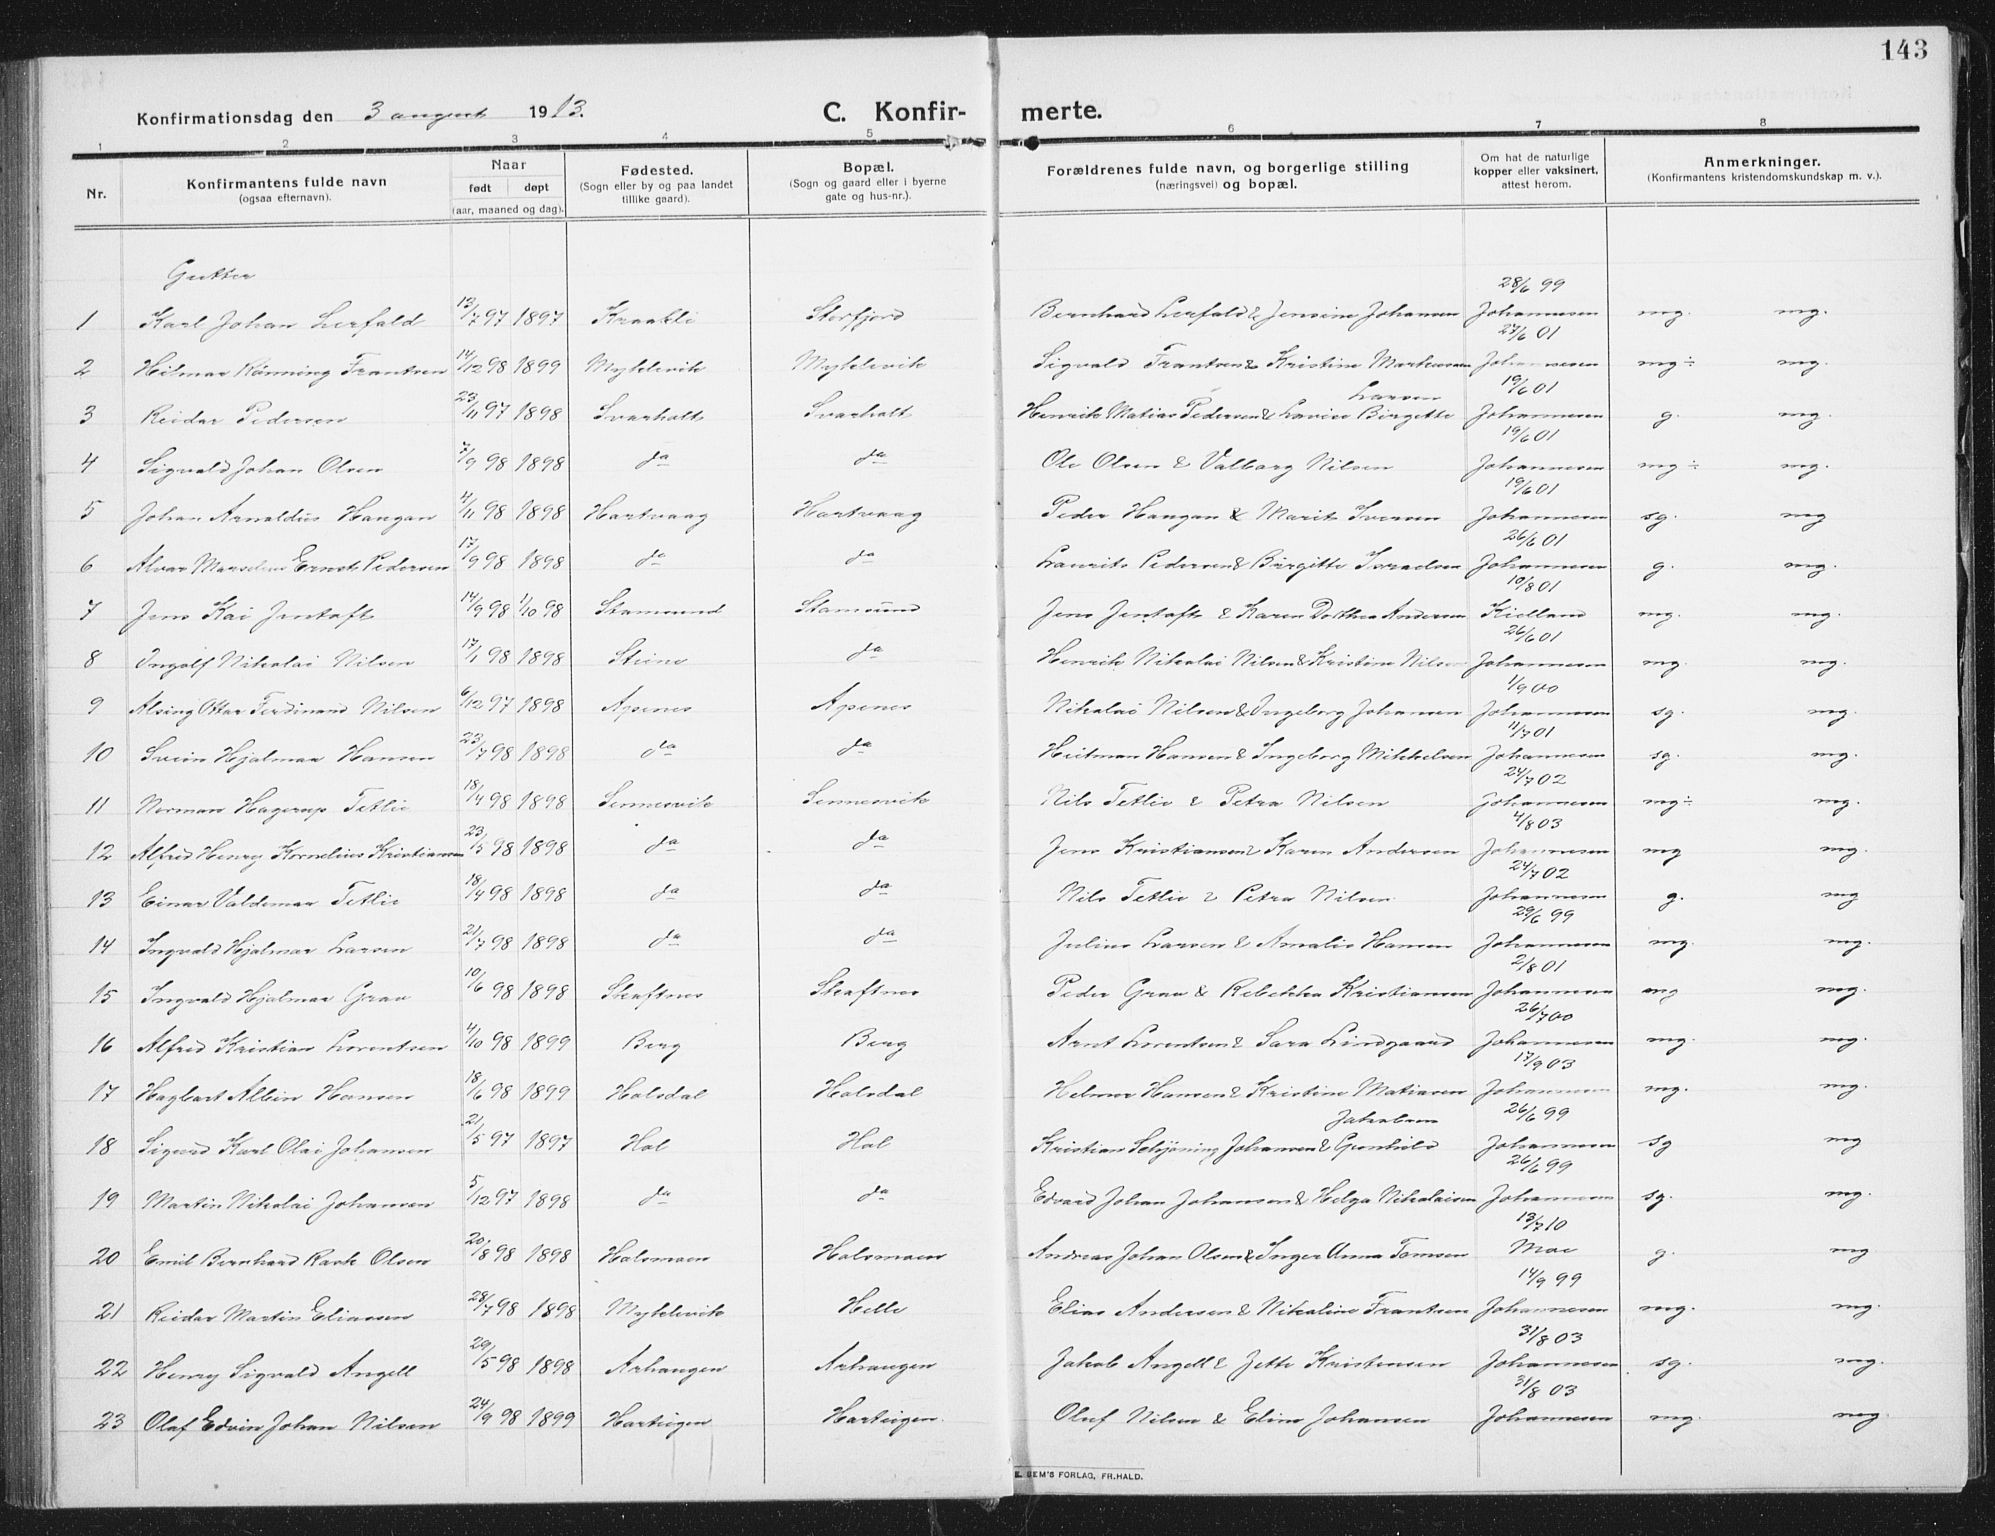 143
Konfirmationsdag den 3 august 1913. C. Konfirmerte.
1 2 3 4 5 6 7 8
Nr. Konfirmantens fulde navn (ogsaa efternavn). Naar født døpt (aar, maaned og dag). Fødested. (Sogn eller by og paa landet tillike gaard). Bopæl. (Sogn og gaard eller i byerne gate og hus-nr.). Forældrenes fulde navn, og borgerlige stilling (næringsvei) og bopæl. Om hat de naturlige kopper eller vaksinert, attest herom. Anmerkninger. (Konfirmantens kristendomskundskap m. v.).
Gutter
1 Karl Johan Lerfald 13/7 97 1897 Kraakli Storfjord Bernhard Lerfald & Jensine Johansen 28/6 99 Johannesen mg. mg.
2 Hilmar Rönning Frantsen 14/12 98 1899 Myklevik Myklevik Sigvald Frantsen & Kristine Markussen 27/6 01 Johannesen mg÷ mg.
3 Reidar Pedersen 23/11 97 1898 Svarholt Svarholt Henrik Matias Pedersen & Lovise Birgitte Larsen 19/6 01 Johannesen g. mg.
4 Sigvald Johan Olsen 7/9 98 1898 da da Ole Olsen & Valborg Nilsen 19/6 01 Johannesen mg÷ mg.
5 Johan Arnoldus Haugan 4/11 98 1898 Hartvaag Hartvaag Peder Haugan & Marit Iversen 19/6 01 Johannesen sg. mg
6 Alvar Marselius Ernst Pedersen 17/9 98 1898 da da Laurits Pedersen & Birgitte Israelsen 26/6 01 Johannesen g. mg.
7 Jens Kai Jentoft 14/9 98 1/10 98 Stamsund Stamsund Jens Jentoft & Karen Dorthea Andersen 10/8 01 Kielland mg. mg.
8 Ingolf Nikolai Nilsen 17/1 98 1898 Steine da Henrik Nikolai Nilsen & Kristine Nilsen 26/6 01 Johannesen mg. mg.
9 Alsing Ottar Ferdinand Nilsen 6/12 97 1898 Apenes Apenes Nikolai Nilsen & Ingeborg Johansen 1/9 00 Johannesen sg. mg.
10 Svein Hjalmar Hansen 23/7 98 1898 da da Heitman Hansen & Ingeborg Mikkelsen 11/7 01 Johannesen sg. mg.
11 Norman Hagerup Tetlie 18/4 98 1898 Sennesvik Sennesvik Nils Tetlie & Petra Nilsen 24/7 02 Johannesen mg÷ mg.
12 Alfred Henry Kornelius Kristiansen 23/5 98 1898 da da Jens Kristiansen & Karen Andersen 4/8 03 Johannesen mg mg.
13 Einar Valdemar Tetlie 18/4 98 1898 da da Nils Tetlie & Petra Nilsen 24/7 02 Johannesen g. mg
14 Ingvald Hjalmar Larsen 21/7 98 1898 da da Julius Larsen & Amalie Hansen 29/6 99 Johannesen mg. mg.
15 Ingvald Hjalmar Grav 10/6 98 1898 Skaftnes Skaftnes Peder Grav & Rebekka Kristiansen 2/8 01 Johannesen mg mg.
16 Alfred Kristian Lorentsen 4/10 98 1899 Berg Berg Arnt Lorentsen & Sara Lindgaard 26/7 00 Johannesen mg. mg.
17 Hagbart Albin Hansen 18/6 98 1899 Holsdal Holsdal Helmer Hansen & Kristine Matiasen 17/9 03 Johannesen mg. mg.
18 Sigurd Karl Olai Johansen 21/5 97 1897 Hol Hol Kristian Schjöning Johansen & Gunhild Jakobsen 26/6 99 Johannesen sg mg
19 Martin Nikolai Johansen 5/12 97 1898 da da Edvard Johan Johansen & Helga Nikolaisen 26/6 99 Johannesen sg. mg.
20 Emil Bernhard Rask Olsen 20/8 98 1898 Holsmoen Holsmoen Andreas Johan Olsen & Inger Anna Tomsen 13/7 10 Moe g. mg
21 Reidar Martin Eliassen 28/7 98 1898 Myklevik Helle Elias Andersen & Nikoline Frantsen 14/9 99 Johannesen mg. mg.
22 Henry Sigvald Angell 29/5 98 1898 Arhaugen Arhaugen Jakob Angell & Jette Kristensen 31/8 03 Johannesen sg. mg.
23 Olaf Edvin Johan Nilsen 24/9 98 1899 Harteigen Harteigen. Oluf Nilsen & Eline Johansen 31/8 03 Johannesen mg. mg.
E. SEM'S FORLAG, FR.HALD.